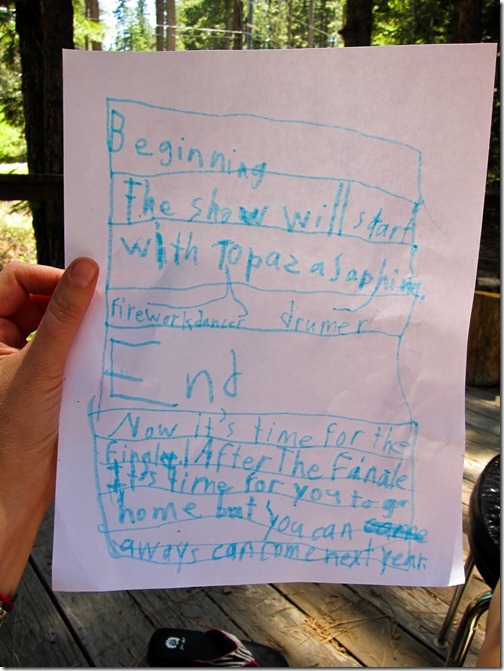 Beginning
The show will start
with Topaz a Saphire,
fireworkdancer drumer
End
Now it's time for the
finaley! After The Finale
It's time for you to go
home but you can came
aways can come next year.